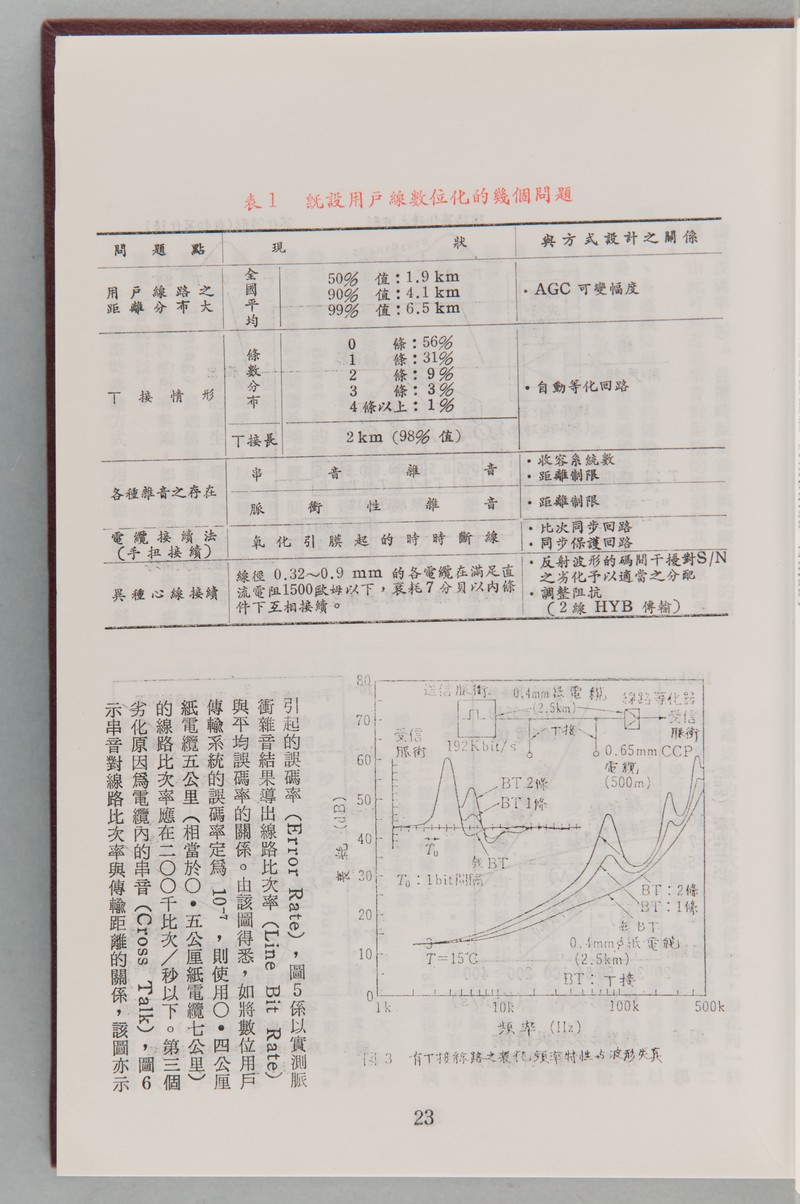 表1 既設用戶線數位化的幾個問題
問題點 現狀 與方式設計之關係
用戶線路之
距離分布大
全國平均
50% 值：1.9 km
90% 值：4.1 km
99% 值：6.5 km
・AGC 可變幅度
丅接情形
條數分布
0 條：56%
1 條：31%
2 條：9%
3 條：3%
4條以上：1%
・自動等化回路
丅接長
2km (98% 值)
各種雜音之存在
串音雜音
・收容系統數
・距離制限
脈衝性雜音
・距離制限
電纜接續法
(手扭接續)
氧化引膜起的時時斷線
・比次同步回路
・同步保護回路
異種心線接續
線徑 0.32～0.9 mm 的各電纜在滿足直
流電阻1500歐姆以下，衰耗7分貝以內條
件下互相接續。
・反射波形的碼間干擾對S/N
之劣化予以適當之分配
・調整阻抗
(2線 HYB 傳輸)
引起的誤碼率（Error Rate），圖5係以實測脈
衝雜音結果導出線路比次率（Line Bit Rate）
與平均誤碼率的關係。由該圖得悉，如將數位用戶
傳輸系統的誤碼率定爲10⁻⁷，則使用〇・四公厘
紙電纜五公里（相當於〇・五公厘紙電纜七公里）
的線路比次率應在二〇〇千比次／秒以下。第三個
劣化原因爲電纜內的串音（Cross Talk），圖6
示串音對線路比次率與傳輸距離的關係，該圖亦示
80
70
60
50
40
30
20
10
0
衰耗 (dB)
送信脈衝
0.4mm紙電纜
(2.5km)
線路等化器
受信
脈衝
192Kbit/s
丅接
受信
脈衝
0.65mm CCP
電纜
(500m)
BT 2條
BT 1條
T₀
無BT
T₀：1bit間隔
BT：2條
BT：1條
無BT
0.4mmφ紙電纜
(2.5km)
T=15°C
BT：丅接
1k 10k 100k 500k
頻率 (Hz)
圖3 有丅接線路之衰耗，頻率特性與波形失真
23